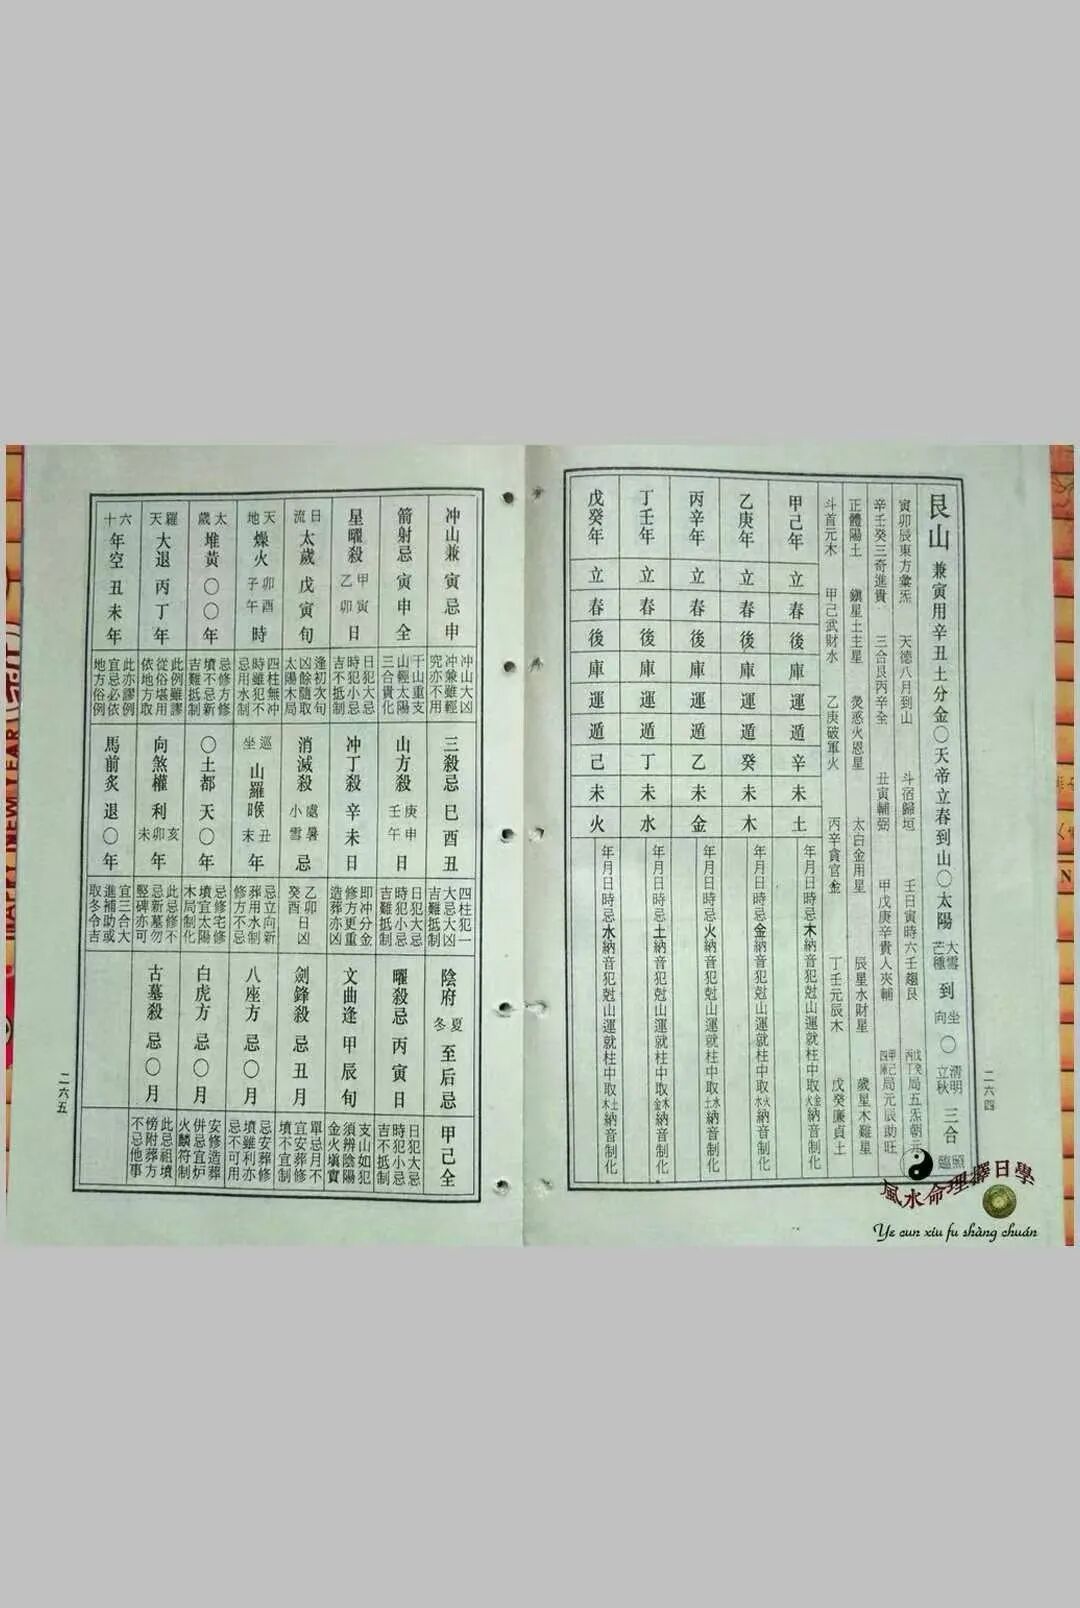 艮山兼寅用辛丑土分金〇天帝立春到山〇太陽大雪芒種到坐向〇清明立秋三合照臨
寅卯辰東方彙炁 天德八月到山 斗宿歸垣 壬日寅時六壬趨艮 戊癸丙丁局五炁朝元
辛壬癸三奇進貴 三合艮丙辛全 丑寅輔弼 甲戊庚辛貴人夾輔 甲己四庫局元辰助旺
正體陽土 鎮星土主星 熒惑火恩星 太白金用星 辰星水財星 歲星木難星
斗首元木 甲己武財水 乙庚破軍火 丙辛貪官金 丁壬元辰木 戊癸廉貞土
甲己年立春後庫運遁辛未土 年月日時忌木納音犯尅山運就柱中取金火納音制化
乙庚年立春後庫運遁癸未木 年月日時忌金納音犯尅山運就柱中取火水納音制化
丙辛年立春後庫運遁乙未金 年月日時忌火納音犯尅山運就柱中取水土納音制化
丁壬年立春後庫運遁丁未水 年月日時忌土納音犯尅山運就柱中取木金納音制化
戊癸年立春後庫運遁己未火 年月日時忌水納音犯尅山運就柱中取土木納音制化
二六四
冲山兼寅忌申 冲山大凶冲兼雖輕究亦不用
箭射忌寅申全 干山重支山輕太陽三合貴化
星曜殺甲寅乙卯日 日犯大忌時犯小忌吉不抵制
日流太歲戊寅旬 逢初次旬凶餘隨取太陽木局
天地燥火卯酉子午時 四柱無冲時雖犯不忌用水制
太歲堆黃〇〇年 忌修方修墳不忌新吉難抵制
羅天大退丙丁年 此例雖謬從俗堪用依地方取
六十年空丑未年 此亦謬例宜忌必依地方俗例
三殺忌巳酉丑 四柱犯一大忌大凶吉難抵制
山方殺庚申壬午日 日犯大忌時犯小忌吉難抵制
冲丁殺辛未日 即冲分金修方更重造葬亦凶
消滅殺處暑小雪忌 乙卯日凶癸酉
巡坐山羅睺丑未年 忌立向新葬用水制修方不忌
〇土都天〇年 忌修宅修墳宜太陽木局制化
向煞權利亥卯未年 此忌修不忌新墓勿竪碑亦可
馬前炙退〇年 宜三合大進補助或取冬令吉
陰府夏冬至后忌甲己全
曜殺忌丙寅日 日犯大忌時犯小忌吉不抵制
文曲逢甲辰旬 支山如犯須辨陰陽金火塡實
劍鋒殺忌丑月 單忌月不宜安葬修墳不宜制
八座方忌〇月 忌安葬修墳雖利亦忌不可用
白虎方忌〇月 安修造葬併忌宜炉火麟符制
古墓殺忌〇月 此忌祖墳傍附葬方不忌他事
二六五
HAPPY NEW YEAR
風水命理擇日學
Ye cun xiu fu shàng chuán